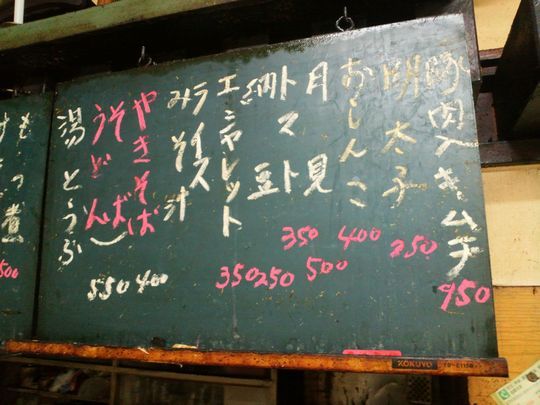 豚肉入キムチ
950
明太子
250
おしんこ
400
月見
500
トマト
350
納豆
250
エシャレット
350
ライス
みそ汁
やきそば
400
うどん
湯とうふ
550
もつ煮
500
KOKUYO